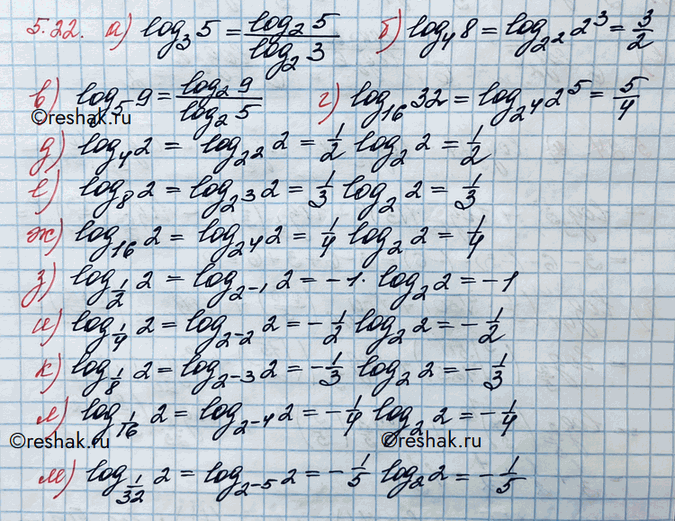 5.22. а) log₃ 5 = log₂ 5 / log₂ 3 б) log₄ 8 = log_{2²} 2³ = 3/2
в) log₅ 9 = log₂ 9 / log₂ 5 г) log₁₆ 32 = log_{2⁴} 2⁵ = 5/4
©reshak.ru
д) log₄ 2 = log_{2²} 2 = 1/2 log₂ 2 = 1/2
е) log₈ 2 = log_{2³} 2 = 1/3 log₂ 2 = 1/3
ж) log₁₆ 2 = log_{2⁴} 2 = 1/4 log₂ 2 = 1/4
з) log_{1/2} 2 = log_{2⁻¹} 2 = -1 · log₂ 2 = -1
и) log_{1/4} 2 = log_{2⁻²} 2 = -1/2 log₂ 2 = -1/2
к) log_{1/8} 2 = log_{2⁻³} 2 = -1/3 log₂ 2 = -1/3
л) log_{1/16} 2 = log_{2⁻⁴} 2 = -1/4 log₂ 2 = -1/4
©reshak.ru ©reshak.ru
м) log_{1/32} 2 = log_{2⁻⁵} 2 = -1/5 log₂ 2 = -1/5